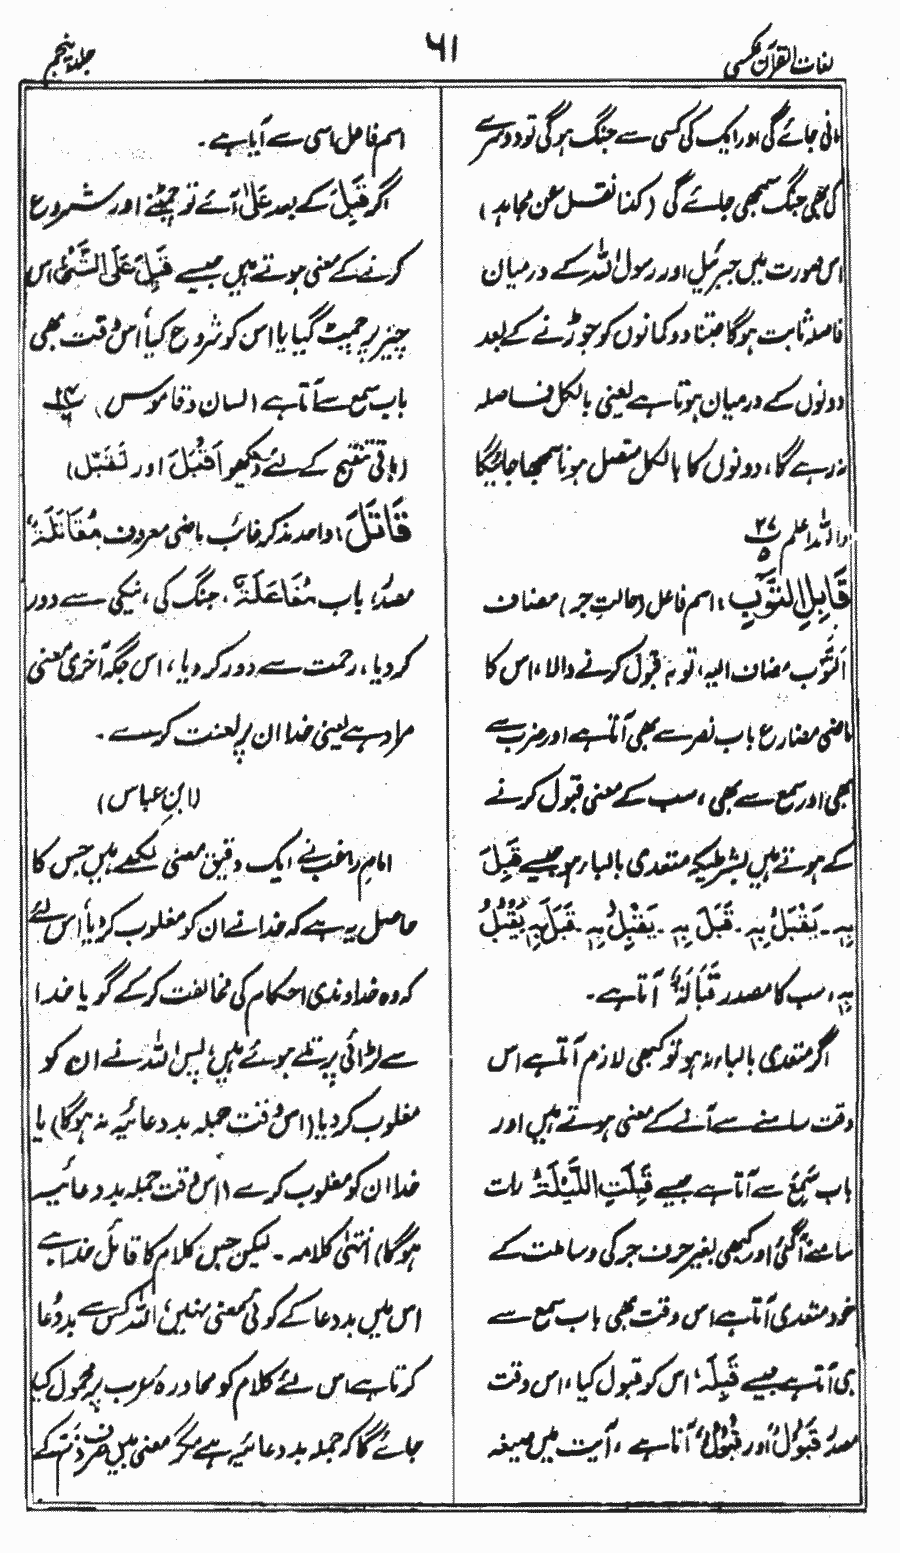 لغات القرآن عکسی
۶۱
جلد پنجم
مانی جائے گی اور ایک کی کسی سے جنگ ہوگی تو دوسرے
کی بھی جنگ سمجھی جائے گی (کذا نقل عن مجاہد)
اس صورت میں جبرئیل اور رسول اللہ کے درمیان
فاصلہ ثابت ہوگا جتنا دو کمانوں کو جوڑنے کے بعد
دونوں کے درمیان ہوتا ہے یعنی بالکل فاصلہ
نہ رہے گا، دونوں کا بالکل متصل ہونا سمجھا جائیگا
واللہ اعلم ۲۷ ۵
قَابِلِ التَّوْبِ: اسم فاعل (حالتِ جر) مضاف
اَلتَّوْب مضاف الیہ، توبہ قبول کرنے والا، اس کا
ماضی مضارع باب نصر سے بھی آتا ہے اور ضرب سے
بھی اور سمع سے بھی، سب کے معنی قبول کرنے
کے ہوتے ہیں بشرطیکہ متعدی بالباء ہو جیسے قَبِلَ
بِہٖ۔ یَقْبَلُ بِہٖ۔ قَبَلَ بِہٖ۔ یَقْبِلُ بِہٖ۔ قَبَلَ بِہٖ یَقْبُلُ
بِہٖ، سب کا مصدر قَبَالَۃٌ آتا ہے۔
اگر متعدی بالباء نہ ہو تو کبھی لازم آتا ہے اس
وقت سامنے سے آنے کے معنی ہوتے ہیں اور
باب سَمِعَ سے آتا ہے جیسے قَبِلَتِ اللَّیْلَۃُ رات
سامنے آگئی اور کبھی بغیر حرف جر کی وساطت کے
خود متعدی آتا ہے اس وقت بھی باب سمع سے
ہی آتا ہے جیسے قَبِلَہٗ اس کو قبول کیا، اس وقت
مصدر قَبُوْلٌ اور قُبُوْلٌ آتا ہے، آیت میں صیغہ
اسم فاعل اسی سے آیا ہے۔
اگر قَبِلَ کے بعد عَلٰی آئے تو چمٹنے اور شروع
کرنے کے معنی ہوتے ہیں جیسے قَبِلَ عَلَی الشَّیْءِ اس
چیز پر چمٹ گیا یا اس کو شروع کیا اس وقت بھی
باب سمع سے آتا ہے (لسان و قاموس)
(باقی تنقیح کے لئے دیکھو اَقْبَلَ اور تَقَبَّل)
قَاتَلَ: واحد مذکر غائب ماضی معروف مُقَاتَلَۃٌ
مصدر، باب مُفَاعَلَۃٌ، جنگ کی، نیکی سے دور
کر دیا، رحمت سے دور کر دیا، اس جگہ آخری معنی
مراد ہے یعنی خدا ان پر لعنت کرے۔
(ابن عباس)
امام راغب نے ایک دقیق معنی لکھے ہیں جس کا
حاصل یہ ہے کہ خدا نے ان کو مغلوب کر دیا اس لئے
کہ وہ خداوندی احکام کی مخالفت کرکے گویا خدا
سے لڑائی پر تلے ہوئے ہیں پس اللہ نے ان کو
مغلوب کر دیا (اس وقت جملہ بددعائیہ نہ ہوگا) یا
خدا ان کو مغلوب کرے (اس وقت جملہ بددعائیہ
ہوگا) اِنْتَہٰی کلامہ۔ لیکن جس کلام کا قائل خدا ہے
اس میں بددعا کے کوئی معنی نہیں، اللہ کس سے بددُعا
کرتا ہے اس لئے کلام کو محاورۂ عرب پر محمول کیا
جائے گا کہ جملہ بددعائیہ ہے مگر معنی میں صرف ذَمّ کے